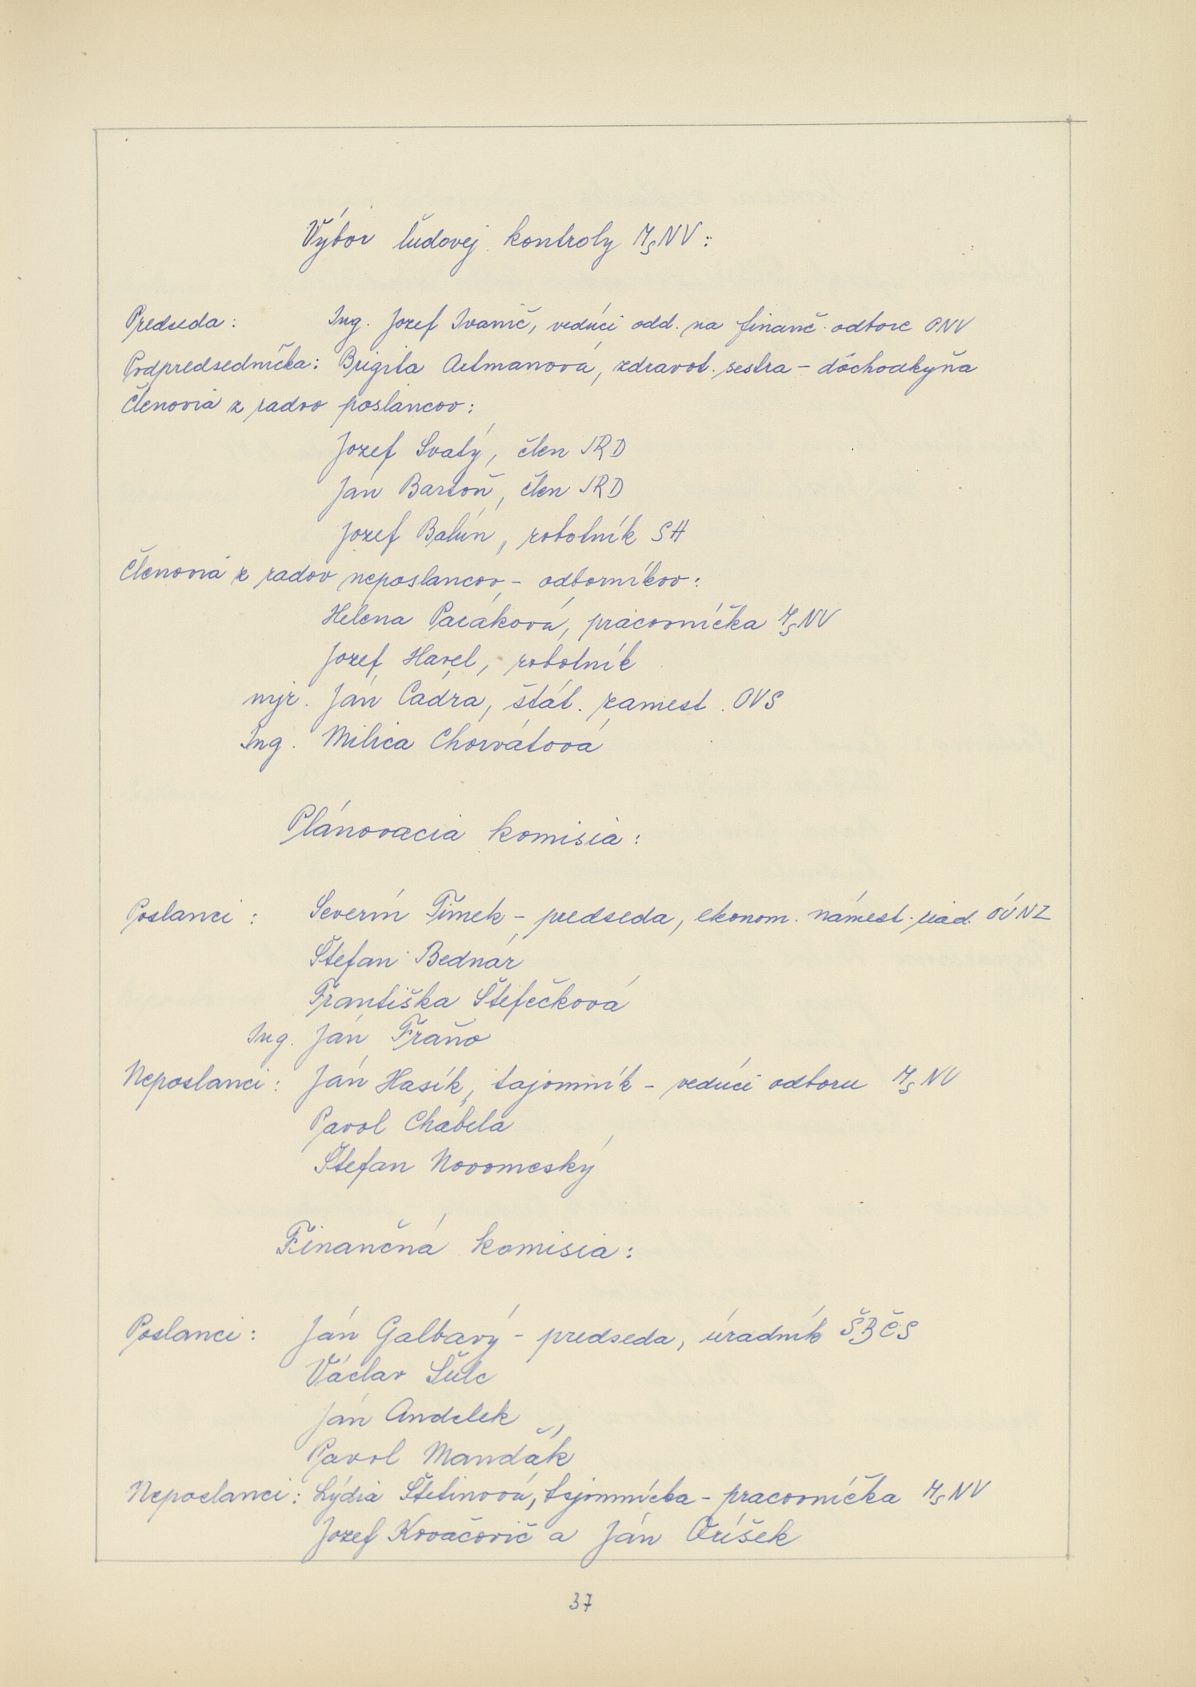 Výbor ľudovej kontroly MsNV:
Predseda: Ing. Jozef Ivanič, vedúci odd. na finanč. odbore ONV
Podpredsedníčka: Brigita Artmanová, zdravot. sestra - dôchodkyňa
Členovia z radov poslancov:
Jozef Svatý, člen JRD
Ján Bartoň, člen JRD
Jozef Balún, robotník SH
Členovia z radov neposlancov - odborníkov:
Helena Pacáková, pracovníčka MsNV
Jozef Havel, robotník
mjr. Ján Cadra, štát. zamest. OVS
Ing. Milica Chorvátová
Plánovacia komisia:
Poslanci: Severín Timek - predseda, ekonom. námest. riad. OÚNZ
Štefan Bednár
Františka Štefečková
Ing. Ján Fraňo
Neposlanci: Ján Hasík, tajomník - vedúci odboru MsNV
Pavol Chábela
Štefan Novomeský
Finančná komisia:
Poslanci: Ján Galbavý - predseda, úradník ŠBČS
Václav Šulc
Ján Andelek
Pavol Mandčák
Neposlanci: Lýdia Štetinová, tajomníčka - pracovníčka MsNV
Jozef Kovačovič a Ján Oríšek
37